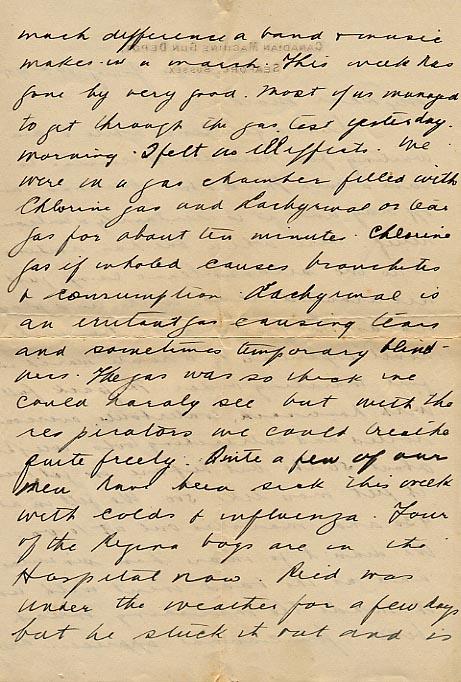 much difference a band & music
makes in a march. This week has
gone by very good. Most of us managed
to get through the gas test yesterday
morning. I felt no ill effects. We
were in a gas chamber filled with
Chlorine gas and Lachrymal or tear
gas for about ten minutes. Chlorine
gas if inhaled causes bronchites
& consumption. Lachrymal is
an irritant gas causing tears
and sometimes temporary blind-
ness. The gas was so thick we
could hardly see but with the
respirators we could breathe
quite freely. Quite a few of our
men have been sick this week
with colds & influenza. Four
of the Regina boys are in the
Hospital now. Reid was
under the weather for a few days
but he stuck it out and is
CANADIAN MACHINE GUN DEPOT
SEAFORD, SUSSEX